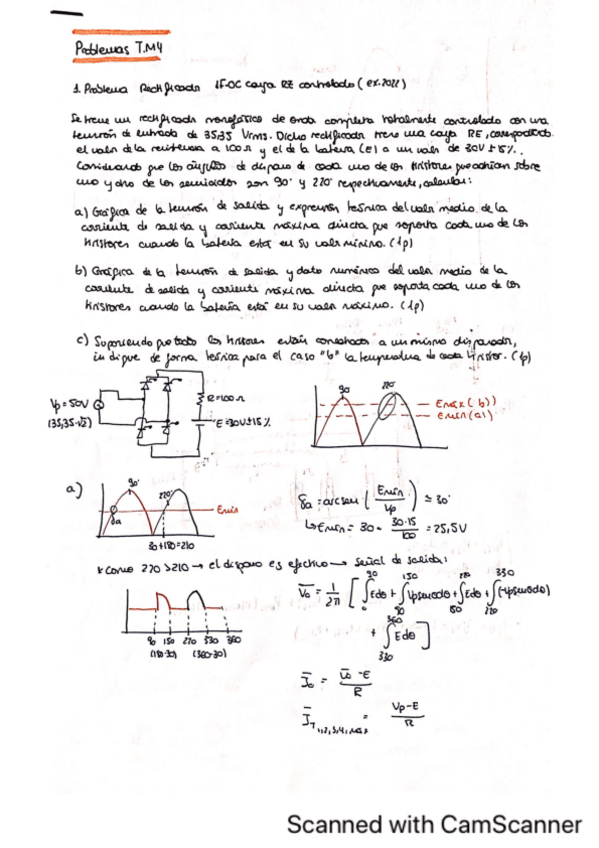 Problemas T.M4
1. Problema Rectificado 1F-OC carga RE controlado (ex.2022)
Se tiene un rectificado monofásico de onda completa totalmente controlado con una
tensión de entrada de 35,35 Vrms. Dicho rectificado tiene una carga RE, correspondiendo
el valor de la resistencia a 100Ω y el de la batería (E) a un valor de 30V ±15%.
Considerando que los ángulos de disparo de cada uno de los tiristores que actúan sobre
uno y otro de los semiciclos son 90° y 220° respectivamente, calcular:
a) Gráfica de la tensión de salida y expresión teórica del valor medio de la
corriente de salida y corriente máxima directa que soporta cada uno de los
tiristores cuando la batería está en su valor mínimo. (1p)
b) Gráfica de la tensión de salida y dato numérico del valor medio de la
corriente de salida y corriente máxima directa que soporta cada uno de los
tiristores cuando la batería está en su valor máximo. (1p)
c) Suponiendo que todos los tiristores están conectados a un mismo disparador,
indique de forma teórica para el caso "b" la temperatura de cada tiristor. (1p)
Vp = 50V
(35,35·√2)
R=100Ω
E=30V±15%
90° 220°
Emáx (b)
Emin (a)
a)
90° 220°
δa
Emin
30+180=210
δa = arcsen (Emin/Vp) ≃ 30°
↳ Emin = 30 - 30·15/100 = 25,5V
* Como 220 > 210 → el disparo es efectivo → Señal de salida:
90 150 220 330 360
(180-30) (360-30)
V̄o = 1/2π [∫Edθ + ∫Vpsenθdθ + ∫Edθ + ∫(-Vpsenθdθ)
+ ∫Edθ]
Īo = (V̄o - E)/R
Ī T1,2,3,4, máx = (Vp - E)/R
Scanned with CamScanner